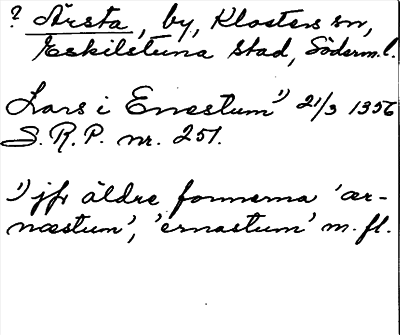 ? Årsta, by, Klosters sn,
Eskilstuna stad, Söderm.l.
Lars i Ernestum¹) 21/3 1356
S.R.P. nr. 251.
¹) jfr äldre formerna 'ær-
næstum', 'ernastum' m. fl.